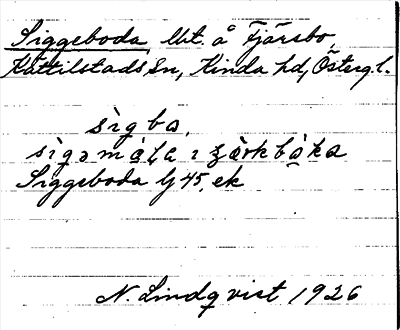 Siggeboda, lht. å Fjärsbo,
Kättilstads Sn, Kinda hd, Österg.l.
sìgbo,
sìgəmåla i
Siggeboda lj 45, ek
N. Lindqvist 1926